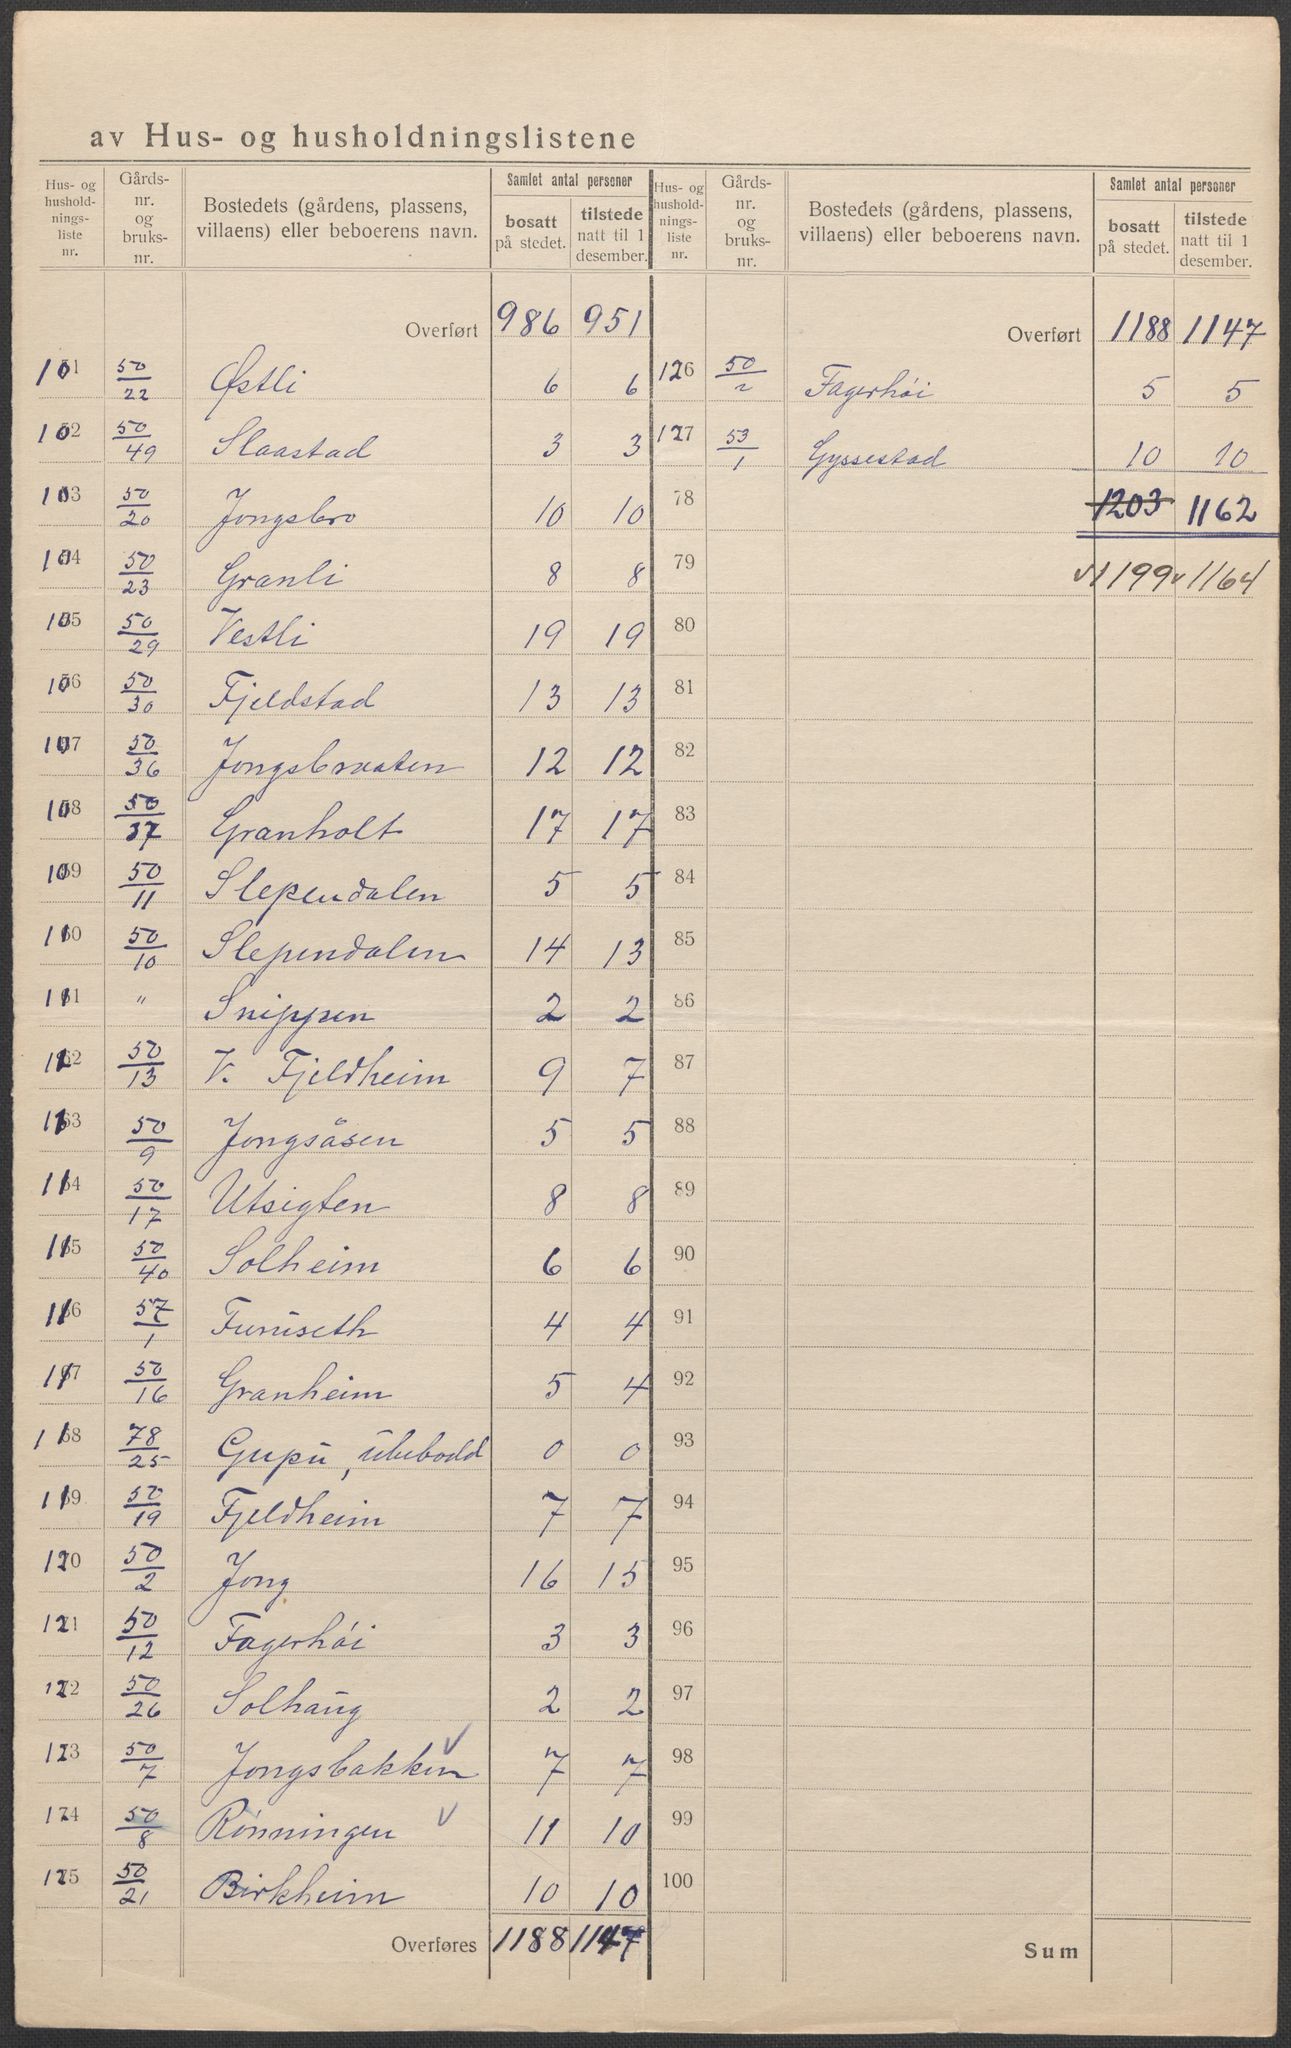 av Hus- og husholdningslistene
Hus- og husholdningsliste nr. | Gårdsnr. og bruksnr. | Bostedets (gårdens, plassens, villaens) eller beboerens navn. | Samlet antal personer | bosatt på stedet. | tilstede natt til 1 desember.
Overført 986 951
101 50/22 Østli 6 6
102 50/49 Slaastad 3 3
103 50/20 Jongsbro 10 10
104 50/23 Granli 8 8
105 50/29 Vestli 19 19
106 50/30 Fjeldstad 13 13
107 50/36 Jongsbraaten 12 12
108 50/37 Granholt 17 17
109 50/11 Slependalen 5 5
110 50/10 Slependalen 14 13
111 " Snippen 2 2
112 50/13 V. Fjeldheim 9 7
113 50/9 Jongsåsen 5 5
114 50/17 Utsigten 8 8
115 50/40 Solheim 6 6
116 57/1 Furuseth 4 4
117 50/16 Granheim 5 4
118 78/25 Gupu, ubebodd 0 0
119 50/19 Fjeldheim 7 7
120 50/2 Jong 16 15
121 50/12 Fagerhøi 3 3
122 50/26 Solhaug 2 2
123 50/7 Jongsbakken 7 7
124 50/8 Rønningen 11 10
125 50/21 Birkheim 10 10
Overføres 1188 1147
Hus- og husholdningsliste nr. | Gårdsnr. og bruksnr. | Bostedets (gårdens, plassens, villaens) eller beboerens navn. | Samlet antal personer | bosatt på stedet. | tilstede natt til 1 desember.
Overført 1188 1147
126 50/2 Fagerhøi 5 5
127 53/1 Gyssestad 10 10
78 1203 1162
79 √1199 √1164
80
81
82
83
84
85
86
87
88
89
90
91
92
93
94
95
96
97
98
99
100
Sum